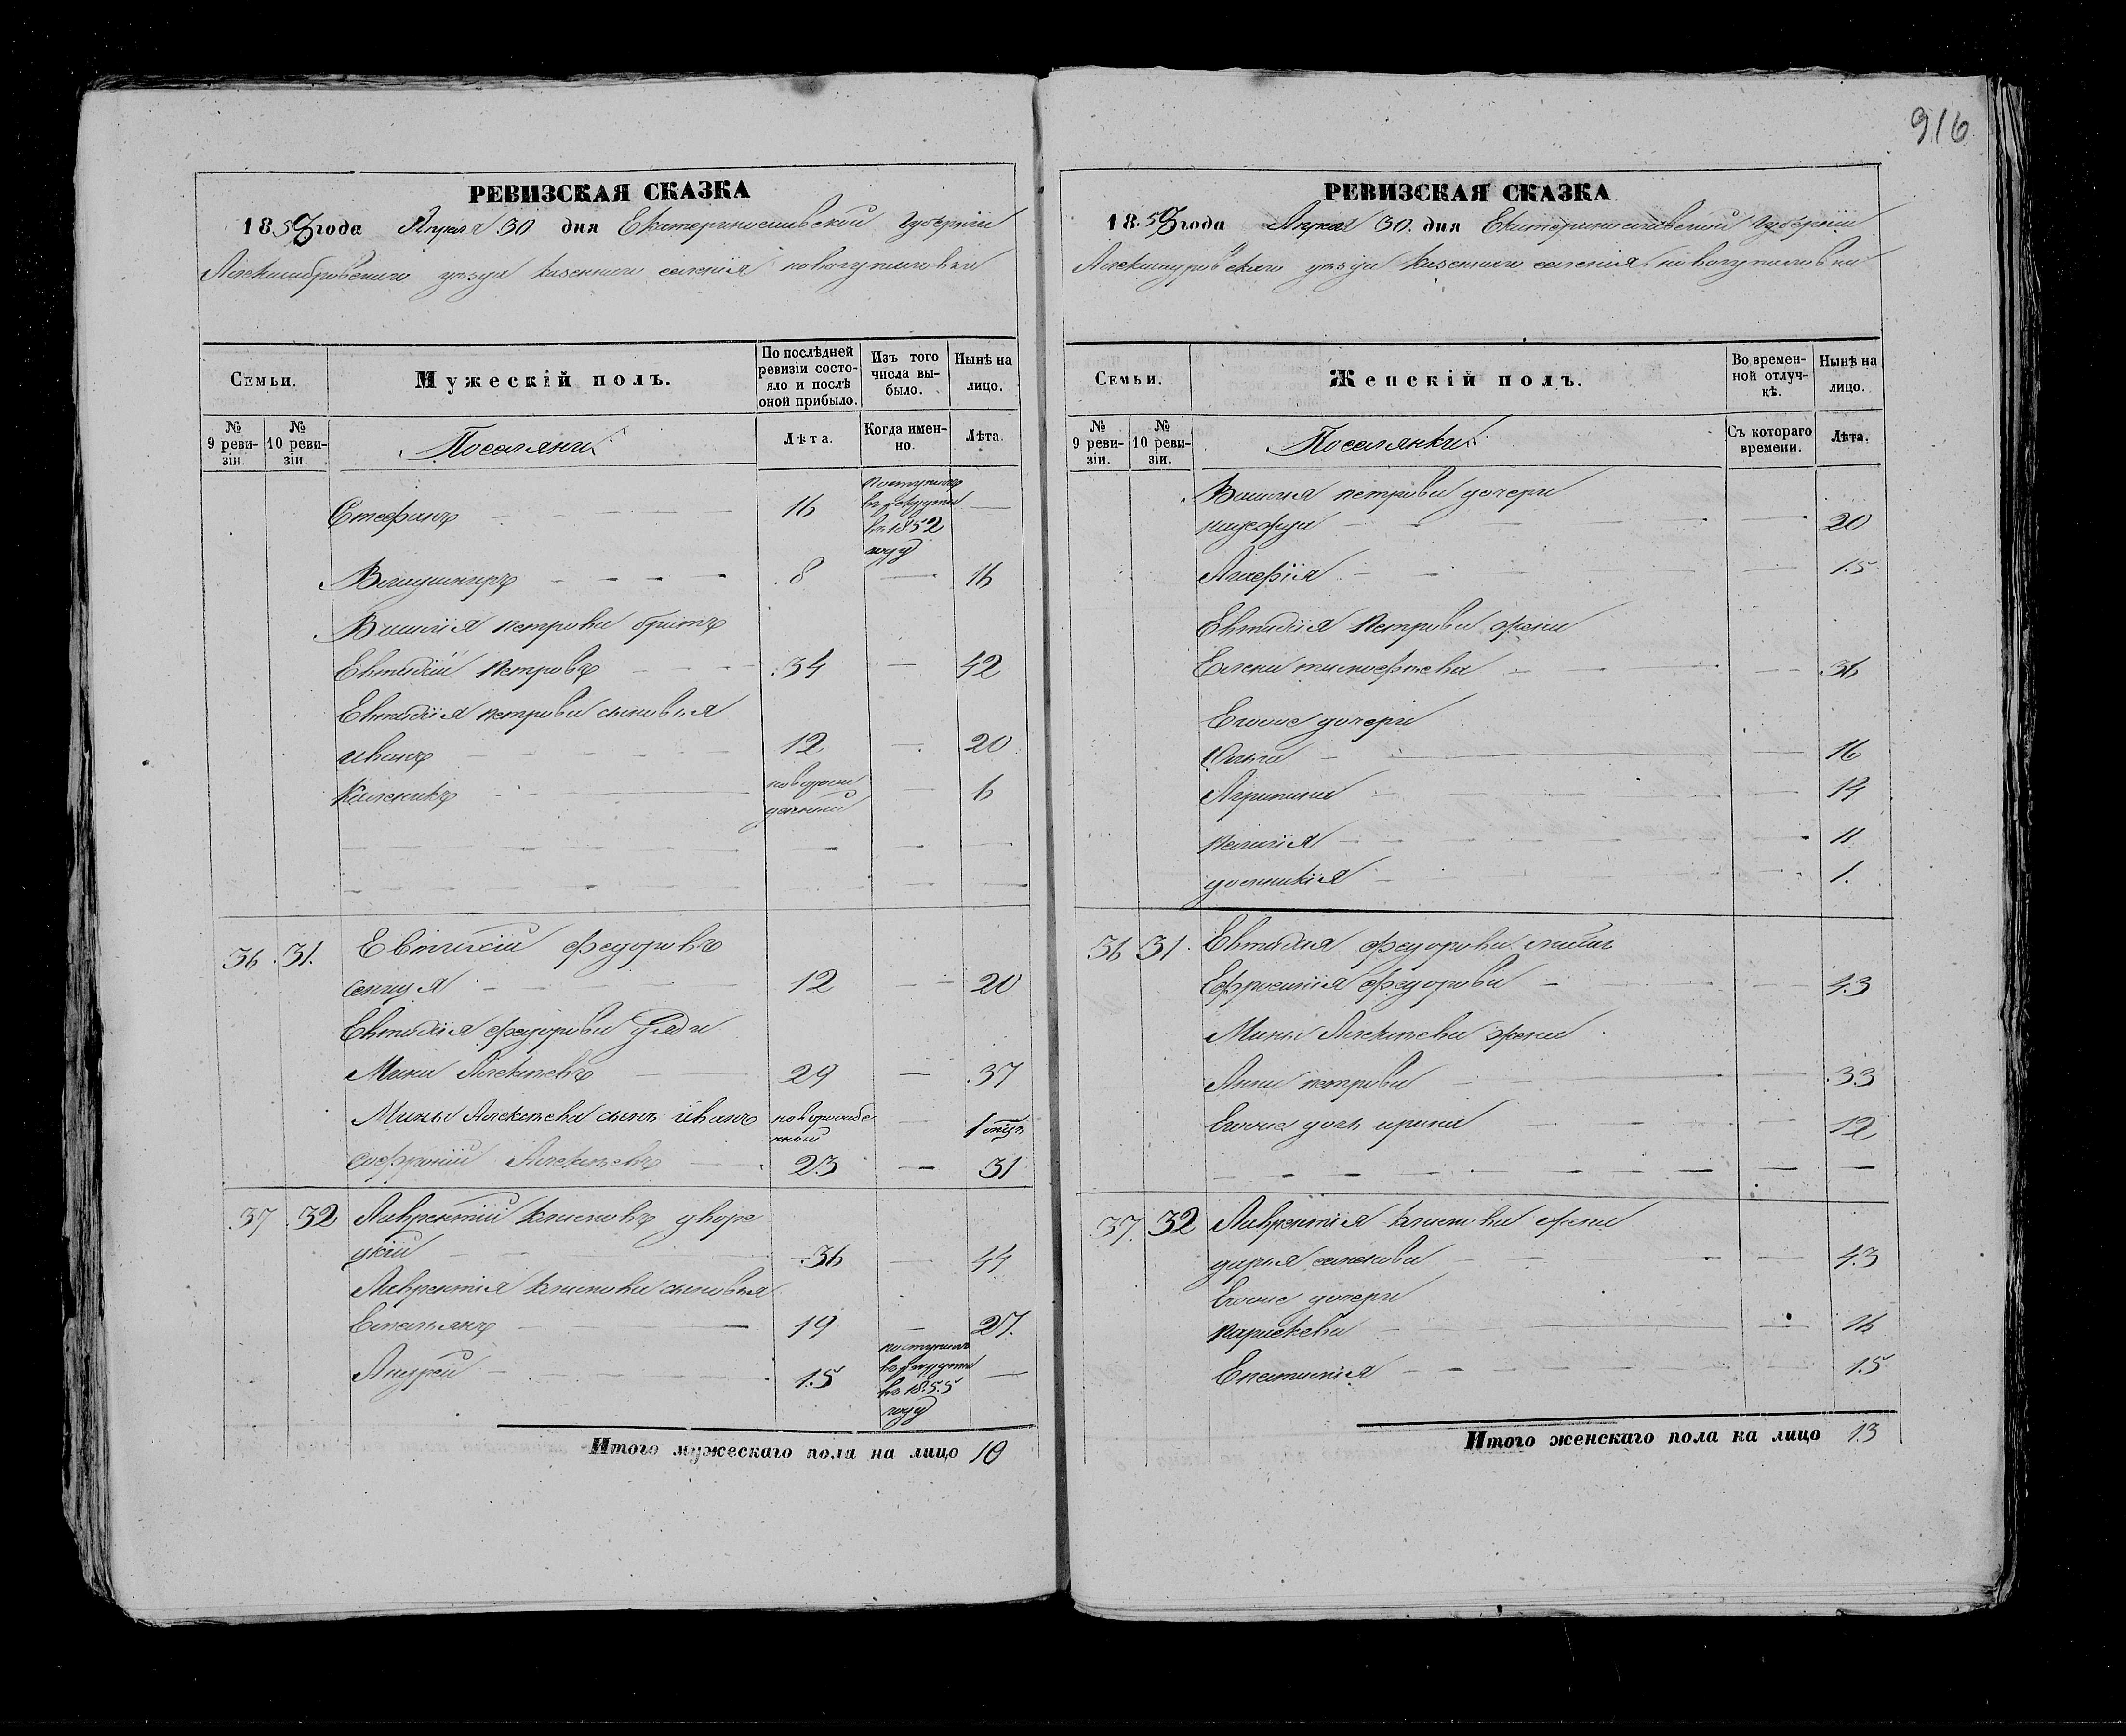 916
РЕВИЗСКАЯ СКАЗКА
1858 года Апреля 30 дня Екатеринославской Губернии
Александровского уезда казенного селения новогупаловки
Семьи.
Мужескій полъ.
По послѣдней ревизіи состояло и послѣ оной прибыло.
Изъ того числа выбыло.
Нынѣ на лицо.
№ 9 ревизіи.
№ 10 ревизіи.
Поселяне
Лѣта.
Когда именно.
Лѣта.
Стефанъ 16 поступилъ въ рекруты въ 1852 году —
Владимиръ 8 — 16
Василія петрова братъ
Евтихій петровъ 34 — 42
Евтихія петрова сыновья
иванъ 12 — 20
Каленикъ новорожденный — 6
36. 31. Евтихій федоровъ
12 — 20
Евтихія федорова дядя
Мина Алексѣевъ 29 — 37
Мины Алексѣева сынъ иванъ новорожденный — 1 мѣць
софроній Алексѣевъ 23 — 31
37 32 Лаврентій климовъ дворецкій 36 — 44
Лаврентія климова сыновья
Емельянъ 19 — 27.
Андрей 15 поступилъ въ рекруты въ 1855 году —
Итого мужескаго пола на лицо 10
РЕВИЗСКАЯ СКАЗКА
1858 года Апреля 30. дня Екатеринославской Губернии
Александровского уезда казенного селения новогупаловки
Семьи.
Женскій полъ.
Во временной отлучкѣ.
Нынѣ на лицо.
№ 9 ревизіи.
№ 10 ревизіи.
Поселянки
Съ котораго времени.
Лѣта.
Василія петрова дочери
надежда — 20
— 15
Евтихія петрова жена
Елена тимофеева — 36
Еѣоне дочери
— 16
Агрипина — 14
пелагія — 11
домникія — 1.
36 31. Евтихия федорова мать
Ефросинія федорова — 43
Мины Алексѣева жена
Анна петрова — 33
дочь ирина — 12
37. 32 Лаврентія климова жена
дарья семенова — 43
дочери
параскева — 16
Епистимія — 15
Итого женскаго пола на лицо 13